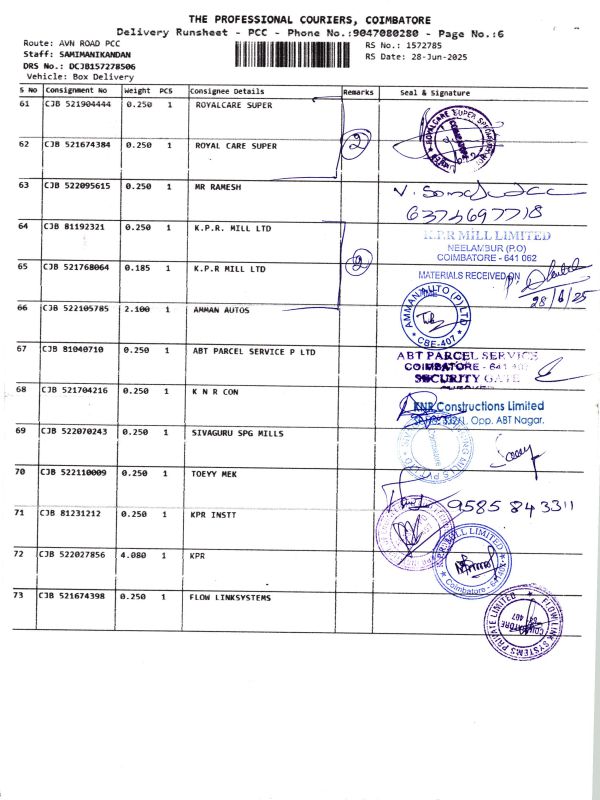 THE PROFESSIONAL COURIERS, COIMBATORE
Delivery Runsheet - PCC - Phone No.:9047080280 - Page No.:6
Route: AVN ROAD PCC
RS No.: 1572785
Staff: SAMIMANIKANDAN
RS Date: 28-Jun-2025
DRS No.: DCJB157278506
Vehicle: Box Delivery
S No Consignment No Weight PCS Consignee Details Remarks Seal & Signature
61 CJB 521904444 0.250 1 ROYALCARE SUPER
62 CJB 521674384 0.250 1 ROYAL CARE SUPER 2
63 CJB 522095615 0.250 1 MR RAMESH
6374697718
64 CJB 81192321 0.250 1 K.P.R. MILL LTD
K.P.R MILL LIMITED
NEELAMBUR (P.O)
COIMBATORE - 641 062
65 CJB 521768064 0.185 1 K.P.R MILL LTD 2
MATERIALS RECEIVED ON
28/6/25
66 CJB 522105785 2.100 1 AMMAN AUTOS
AMMAN AUTO (P) LTD
CBE-407
67 CJB 81040710 0.250 1 ABT PARCEL SERVICE P LTD
ABT PARCEL SERVICE
COIMBATORE - 641 407
SECURITY GATE
68 CJB 521704216 0.250 1 K N R CON
KNR Constructions Limited
Opp. ABT Nagar.
69 CJB 522070243 0.250 1 SIVAGURU SPG MILLS
70 CJB 522110009 0.250 1 TOEYY MEK
9585843311
71 CJB 81231212 0.250 1 KPR INSTT
72 CJB 522027856 4.080 1 KPR
K.P.R. MILL LIMITED
Coimbatore
73 CJB 521674398 0.250 1 FLOW LINKSYSTEMS
FLOWLINK SYSTEMS PRIVATE LIMITED
COIMBATORE
641 407